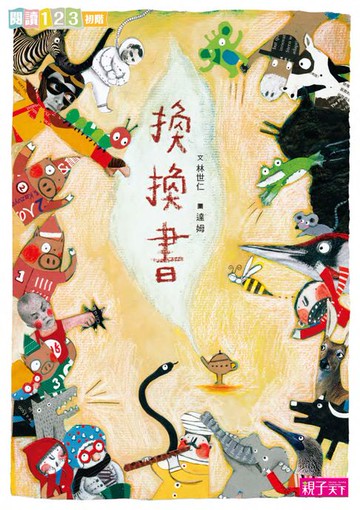 閱讀123 初階
換換書
文 林世仁
圖 達姆
親子天下